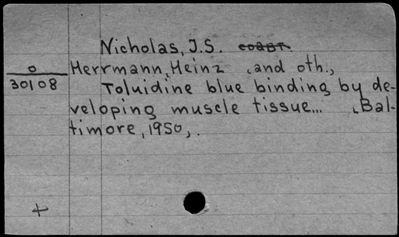 Nicholas, J.S. coaвт.
o Herrmann, Heinz , and oth.,
30108 Toluidine blue binding by de-
veloping muscle tissue... , Bal-
timore, 1950, .
+